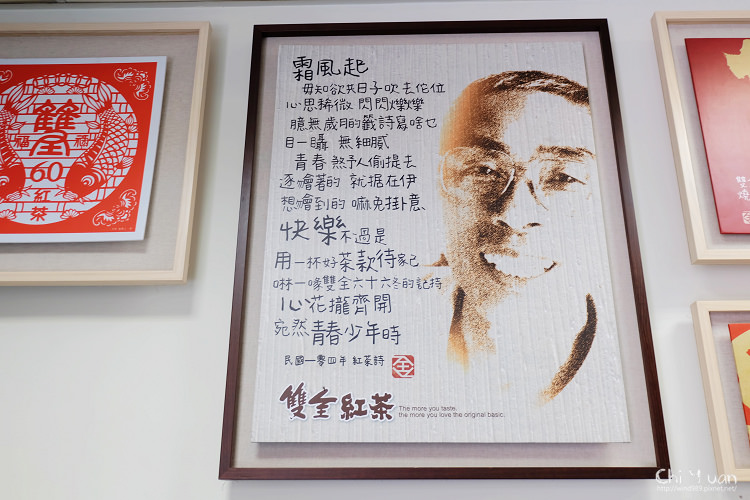 雙全
福
福
60
紅茶
霜風起
毋知欲共日子吹去佗位
心思稀微 閃閃爍爍
臆無歲月的籤詩寫啥乜
目一瞌 無細膩
青春煞予人偷提去
逐嘛著的 就据在伊
想嘛到的 嘛免掛意、
快樂不過是
用一杯好茶款待家己
啉一喙雙全六十六冬的記持
心花攏齊開
宛然青春少年時
民國一零四年 紅茶詩
全
雙全紅茶
The more you taste.
the more you love the original basic.
Chi Yuan